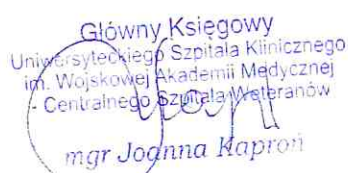 Główny Księgowy
Uniwersyteckiego Szpitala Klinicznego
im. Wojskowej Akademii Medycznej
- Centralnego Szpitala Weteranów
mgr Joanna Kaproń